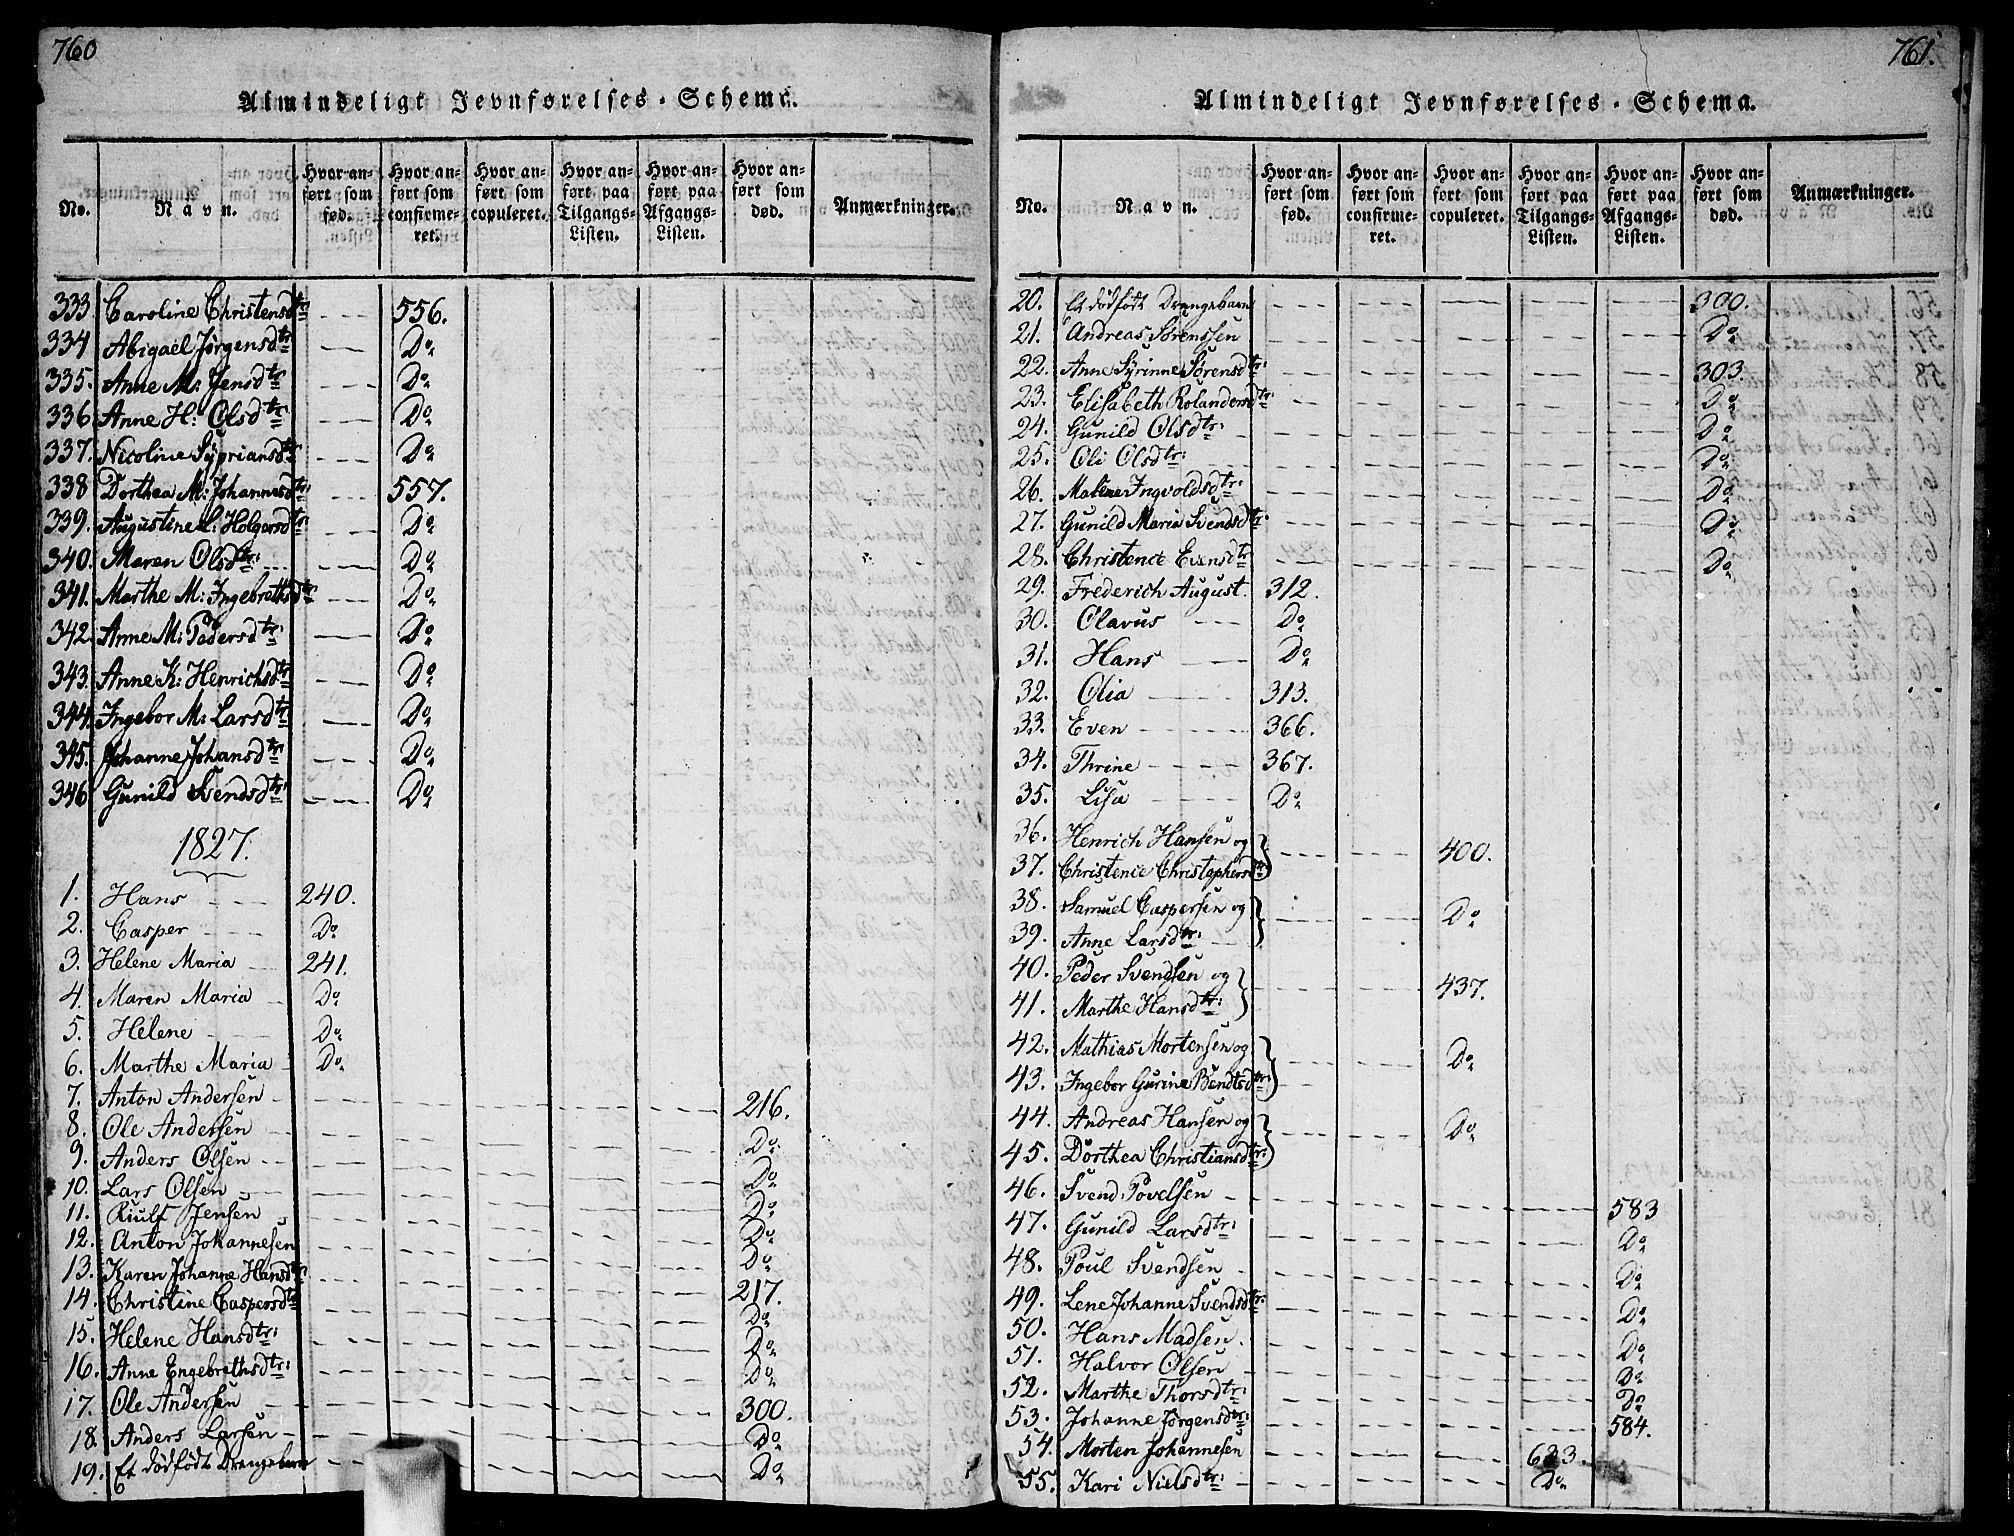 760
Almindeligt Jevnførelses-Schema.
No.
Navn.
Hvor anført som fød.
Hvor anført som confirmeret.
Hvor anført som copuleret.
Hvor anført paa Tilgangs-Listen.
Hvor anført paa Afgangs-Listen.
Hvor anført som død.
Anmærkninger.
333 Caroline Christensdtr 556.
334 Abigael Jørgensdtr Do
335. Anne M: Jensdtr Do
336 Anne H: Olsdtr: Do
337. Nicoline Sypriansdtr Do
338 Dorthea M: Johannesdtr: 557.
339. Augustine L: Holgersdtr: Do
340. Maren Olsdtr: Do
341. Marthe M: Ingebrethsdtr: Do
342. Anne M: Pedersdtr: Do
343. Anne K: Henrichsdtr: Do
344. Ingebor M: Larsdtr Do
345. Johanne Johansdtr: Do
346 Gunild Svendsdtr: Do
1827.
1. Hans 240.
2. Casper Do
3. Helene Maria 241.
4. Maren Maria Do
5. Helene Do
6. Marthe Maria Do
7. Anton Andersen 216.
8. Ole Andersen Do
9. Anders Olsen Do
10. Lars Olsen Do
11. Riulf Jensen Do
12. Anton Johannesen Do
13. Karen Johanne Hansdtr: 217.
14. Christine Caspersdtr Do
15. Helene Hansdtr: Do
16. Anne Engebrethsdtr: Do
17. Ole Andersen 300.
18. Anders Larsen Do
19. Et dødfødt Drengebarn Do
761.
Almindeligt Jevnførelses-Schema.
No.
Navn.
Hvor anført som fød.
Hvor anført som confirmeret.
Hvor anført som copuleret.
Hvor anført paa Tilgangs-Listen.
Hvor anført paa Afgangs-Listen.
Hvor anført som død.
Anmærkninger.
20. Et dødfødt Drengebarn 300.
21. Andreas Sørenssen Do
22. Anne Syrinne Sørensdtr: 303.
23. Elisabeth Rolandersdtr: Do
24. Gunild Olsdtr: Do
25. Oli Olsdtr: Do
26. Malene Ingvoldsdtr: Do
27. Gunild Maria Svendsdtr: Do
28. Christence Evensdtr Do
29. Frederich August. 312.
30. Olavus Do
31. Hans Do
32. Olia 313.
33. Even 366.
34. Thrine 367.
35. Lisa Do
36. Henrich Hansen og
37. Christence Christophersdtr 400.
38. Samuel Caspersen og
39. Anne Larsdtr: Do
40. Peder Svendsen og
41. Marthe Hansdtr: 437.
42. Mathias Mortensen og
43. Ingebor Gurine Bendtsdtr: Do
44. Andreas Hansen og
45. Dorthea Christiansdtr: Do
46. Svend Povelsen 583
47. Gunild Larsdtr: Do
48. Poul Svendsen Do
49. Lene Johanne Svendsdtr: Do
50. Hans Madsen Do
51. Halvor Olsen Do
52. Marthe Thorsdtr: Do
53. Johanne Jørgensdtr: 584.
54. Morten Johannesen 683.
55. Kari Nielsdtr: Do